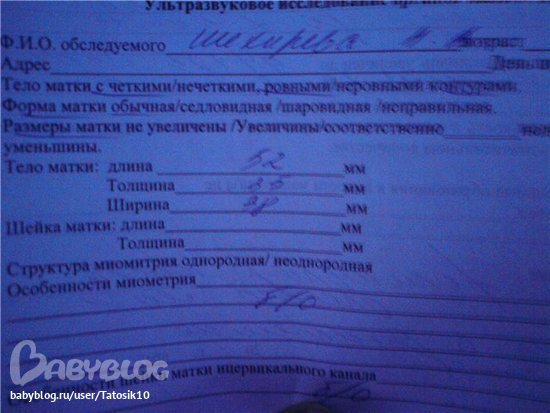 Ультразвуковое исследование
Ф.И.О. обследуемого
Адрес
Тело матки с четкими/нечеткими, ровными/неровными контурами.
Форма матки обычная/седловидная /шаровидная /неправильная.
Размеры матки не увеличены /Увеличены/соответственно
уменьшины.
Тело матки: длина 52 мм
Толщина мм
Ширина мм
Шейка матки: длина мм
Толщина мм
Структура миомитрия однородная/ неоднородная
Особенности миометрия
б/о
BABYBLOG
матки ицервикального канала
б/о
babyblog.ru/user/Tatosik10